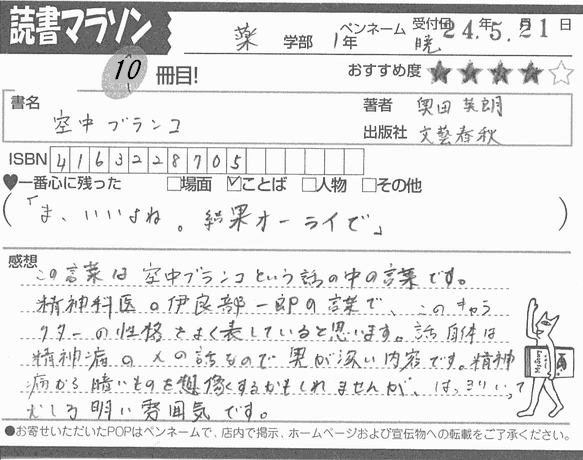 読書マラソン
薬 学部 1年
ペンネーム 暁
受付日 24年5月21日
10 冊目!
おすすめ度 ★★★★☆
書名 空中ブランコ
著者 奥田英朗
出版社 文藝春秋
ISBN 4163228705
♥一番心に残った □場面 ☑ことば □人物 □その他
(「ま、いいよね。結果オーライで」)
感想
この言葉は空中ブランコという話の中の言葉です。
精神科医の伊良部一郎の言葉で、このキャラ
クターの性格をよく表していると思います。話自体は
精神病の人の話なので奥が深い内容です。精神
病から暗いものを想像するかもしれませんが、はっきりいって
むしろ明るい雰囲気です。
●お寄せいただいたPOPはペンネームで、店内で掲示、ホームページおよび宣伝物への転載をご了承ください。